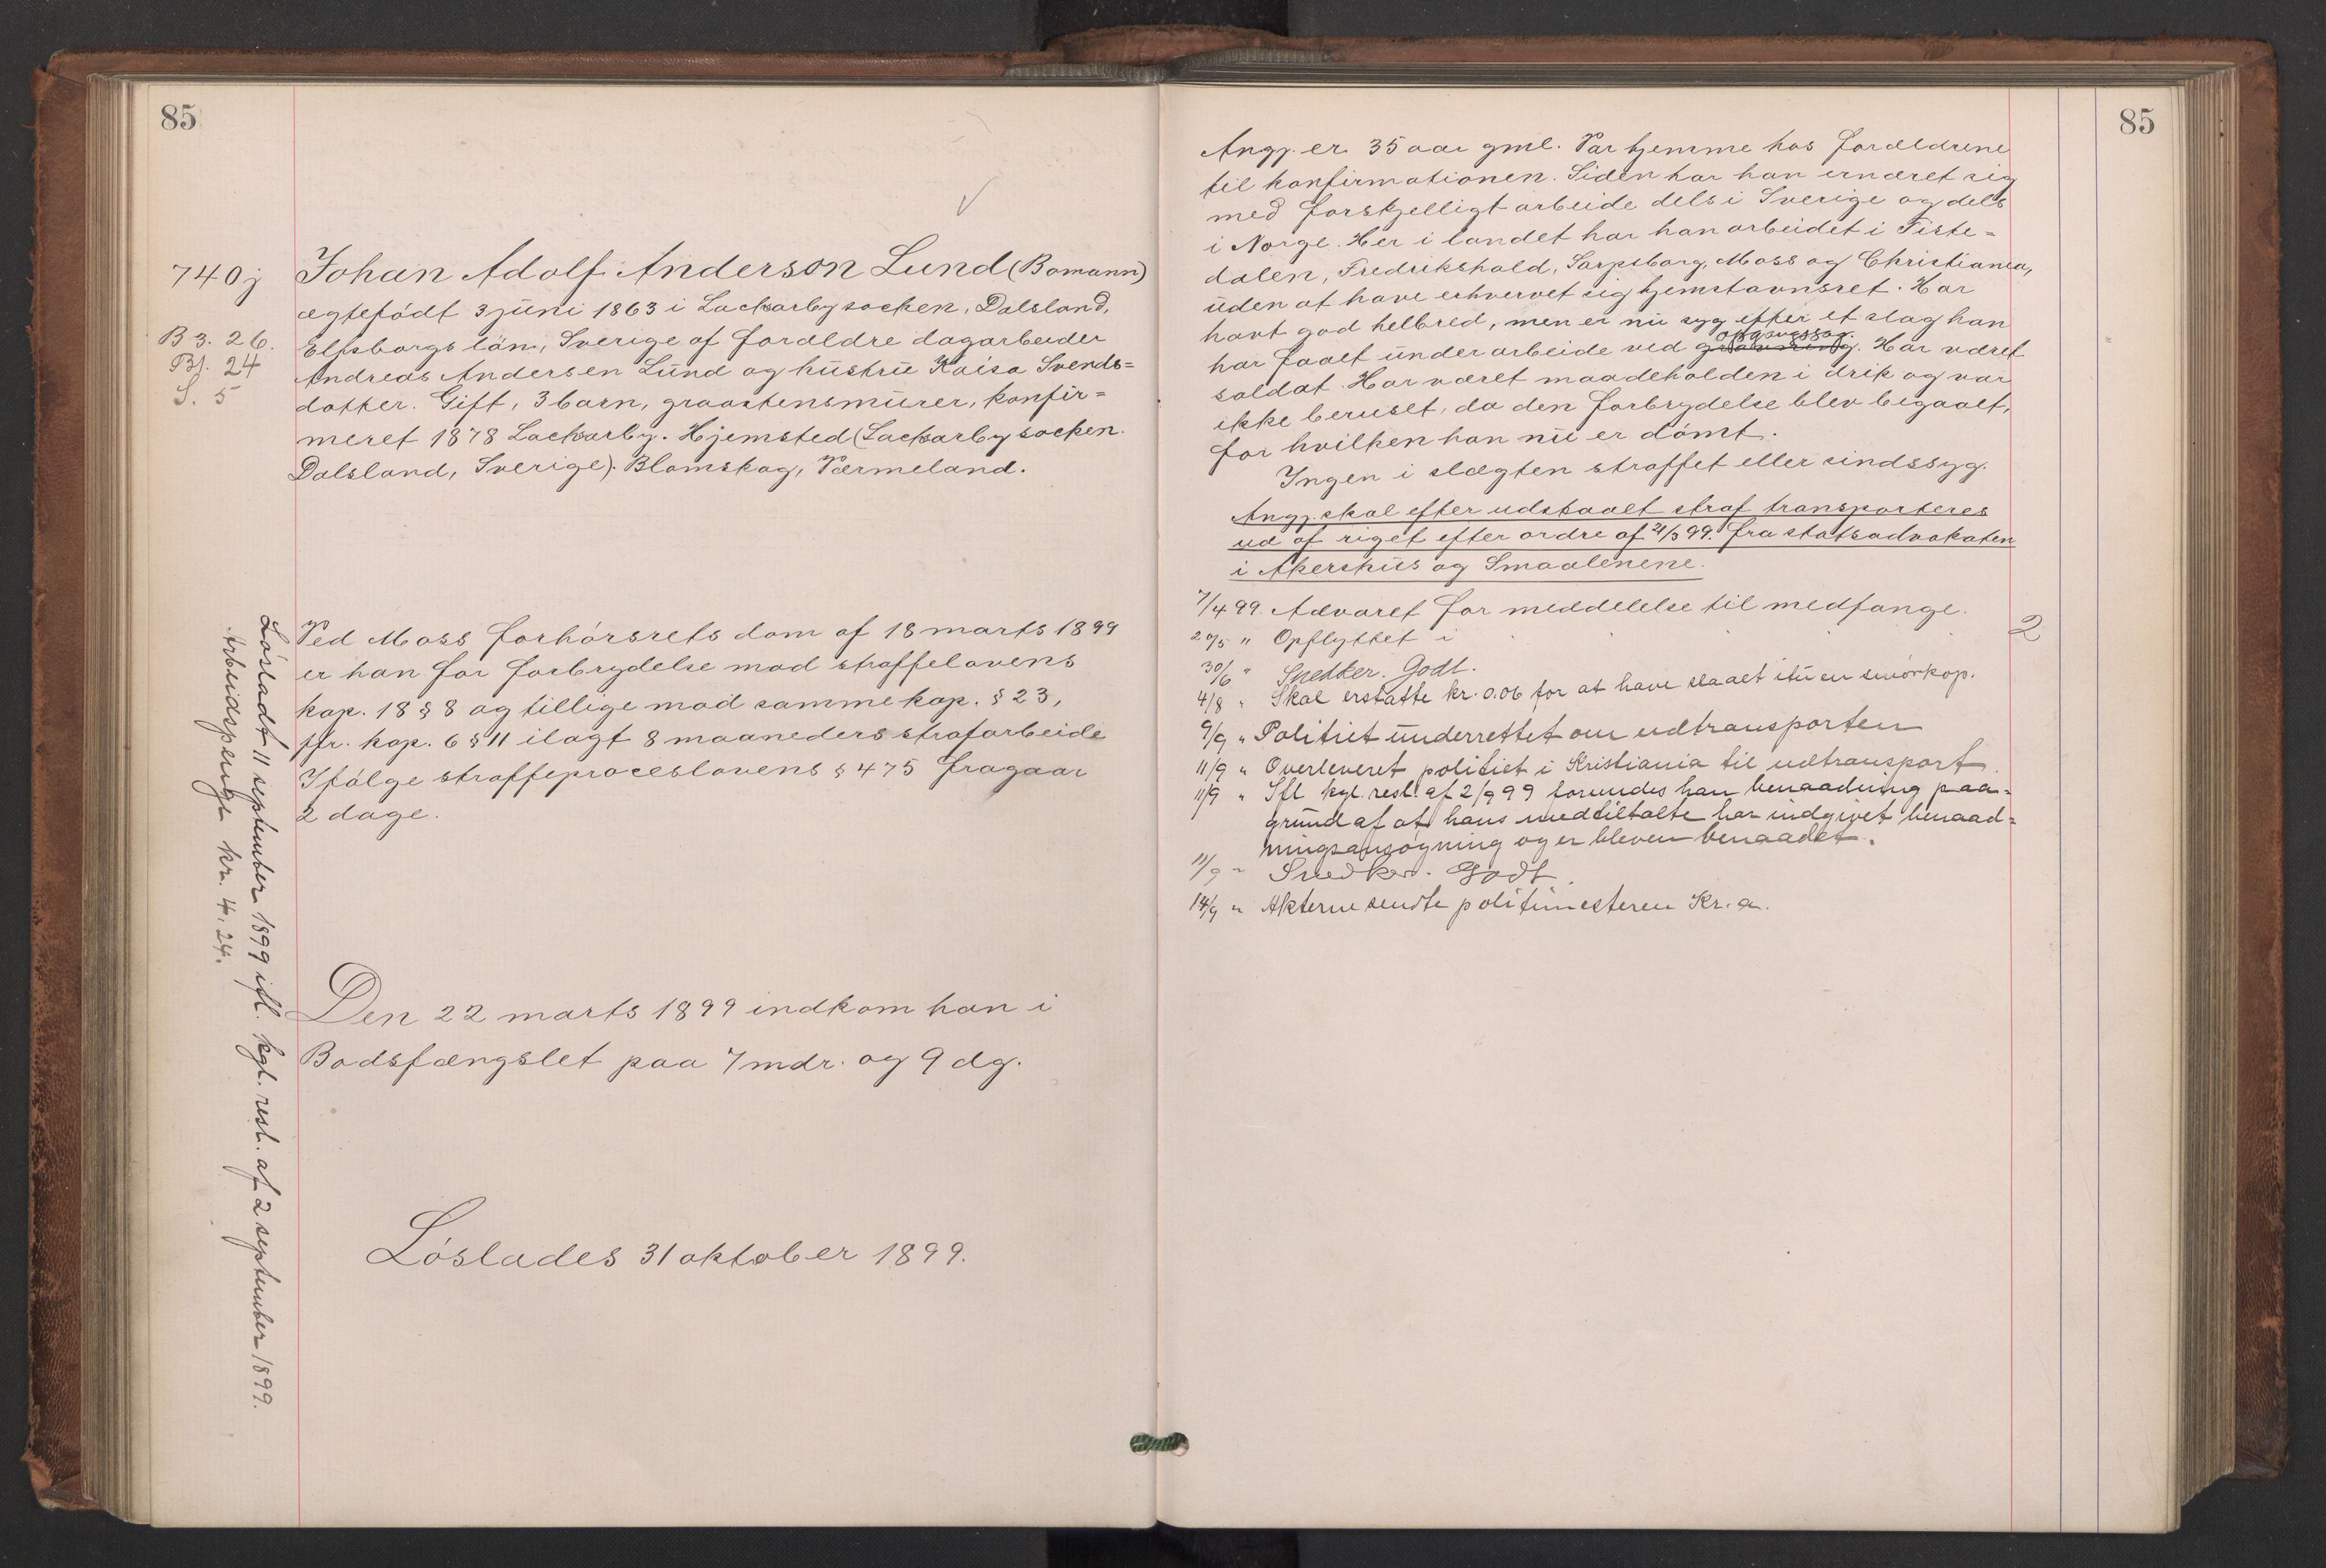 85
740j
B 3. 26.
Bl. 24
S. 5
Johan Adolf Anderson Lund (Bomann)
ægtefödt 3 juni 1863 i Lackarby socken, Dalsland,
Elfsborgs län, Sverige af forældre dagarbeider
Andreas Andersen Lund og hustru Kaisa Svends=
dotter. Gift, 3 barn, graastensmurer, konfir=
meret 1878 Lackarby. Hjemsted (Lackarby socken.
Dalsland, Sverige). Blomskog, Værmeland.
Ved Moss forhörsrets dom af 18 marts 1899
er han for forbrydelse mod straffelovens
kap. 18 § 8 og tillige mod samme kap. § 23,
jfr. kap. 6 § 11 ilagt 8 maaneders strafarbeide
Ifölge straffeproceslovens § 475 fragaar
2 dage.
Den 22 marts 1899 indkom han i
Bodsfængslet paa 7 mdr. og 9 dg.
Löslades 31 oktober 1899.
Lösladt 11 september 1899 ifl. kgl. resl. af 2 september 1899.
Arbeidspenge kr. 4.24.
85
Angj. er 35 aar gml. Var hjemme hos forældrene
til konfirmationen. Siden har han ernæret sig
med forskjelligt arbeide dels i Sverige og dels
i Norge. Her i landet har han arbeidet i Tiste=
dalen, Fredrikshald, Sarpsborg, Moss og Christiania,
uden at have erhvervet sig hjemstavnsret. Har
havt god helbred, men er nu syg efter et slag han
har faaet under arbeide ved Har været
soldat. Har været maadeholden i drik og var
ikke beruset, da den forbrydelse blev begaaet,
for hvilken han nu er dömt.
Ingen i slægten straffet eller sindssyg.
Angj. skal efter udstaaet straf transporteres
ud af riget efter ordre af 21/3 99. fra statsadvokaten
i Akershus og Smaalenene.
7/4 99. Advaret for meddelelse til medfange.
20/5 " Opflyttet i 2
30/6 " Snedker. Godt.
4/8 " Skal erstatte kr. 0.06 for at have slaaet itu en smörkop.
9/9 " Politiet underrettet om udtransporten
11/9 " Overleveret politiet i Kristiania til udtransport.
11/9 " Ifl. kgl. resl. af 2/9 99 forundes han benaadning paa=
grund af at hans medtiltalte har indgivet benaad=
ningsansøgning og er bleven benaadet.
11/9 " Snedker. Godt.
14/9 " Akterne sendte politimesteren Kr.a.